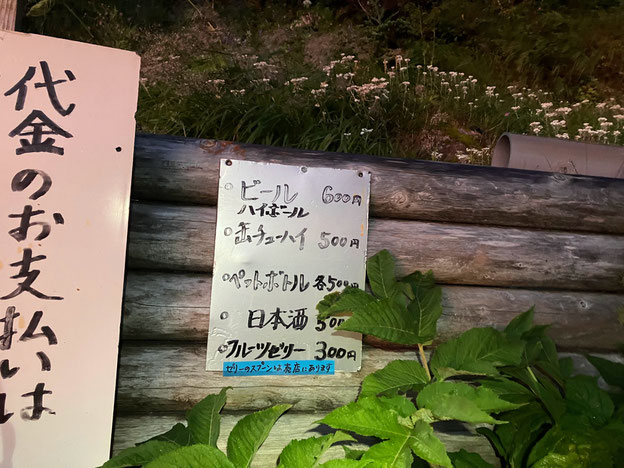 代金のお支払いは
ビール 600円
ハイボール
缶チューハイ 500円
ペットボトル 各500円
日本酒 500
フルーツゼリー 300円
ゼリーのスプーンは売店にあります